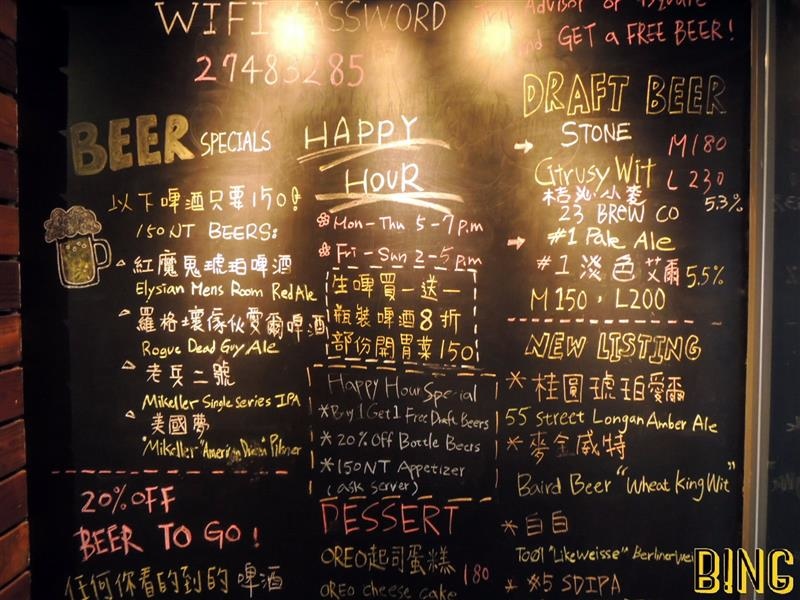 WIFI PASSWORD
27483285
Trip Advisor or
and GET a FREE BEER!
BEER SPECIALS
以下啤酒只要150!
150NT BEERS:
紅魔鬼琥珀啤酒
Elysian Mens Room Red Ale
羅格壞傢伙愛爾啤酒
Rogue Dead Guy Ale
老兵二號
Mikeller Single series IPA
美國夢
Mikeller "American Dream" Pilsner
20% OFF
BEER TO GO!
任何你看的到的啤酒
HAPPY
HOUR
Mon-Thu 5-7 p.m
Fri-Sun 2-5 p.m
生啤買一送一
瓶裝啤酒8折
部份開胃菜150
Happy Hour Special
*Buy 1 Get 1 Free Draft Beers
*20% Off Bottle Beers
*150NT Appetizer
(ask server)
DESSERT
OREO起司蛋糕 180
OREO cheese cake
DRAFT BEER
STONE M180
Citrusy Wit L 230
小麥 5.3%
23 BREW CO
#1 Pale Ale
#1 淡色艾爾 5.5%
M150, L200
NEW LISTING
*桂圓琥珀愛爾
55 street Longan Amber Ale
*麥金威特
Baird Beer "Wheat King Wit"
*白白
TOOL "Likeweisse" Berliner
*#5 SDIPA
BING